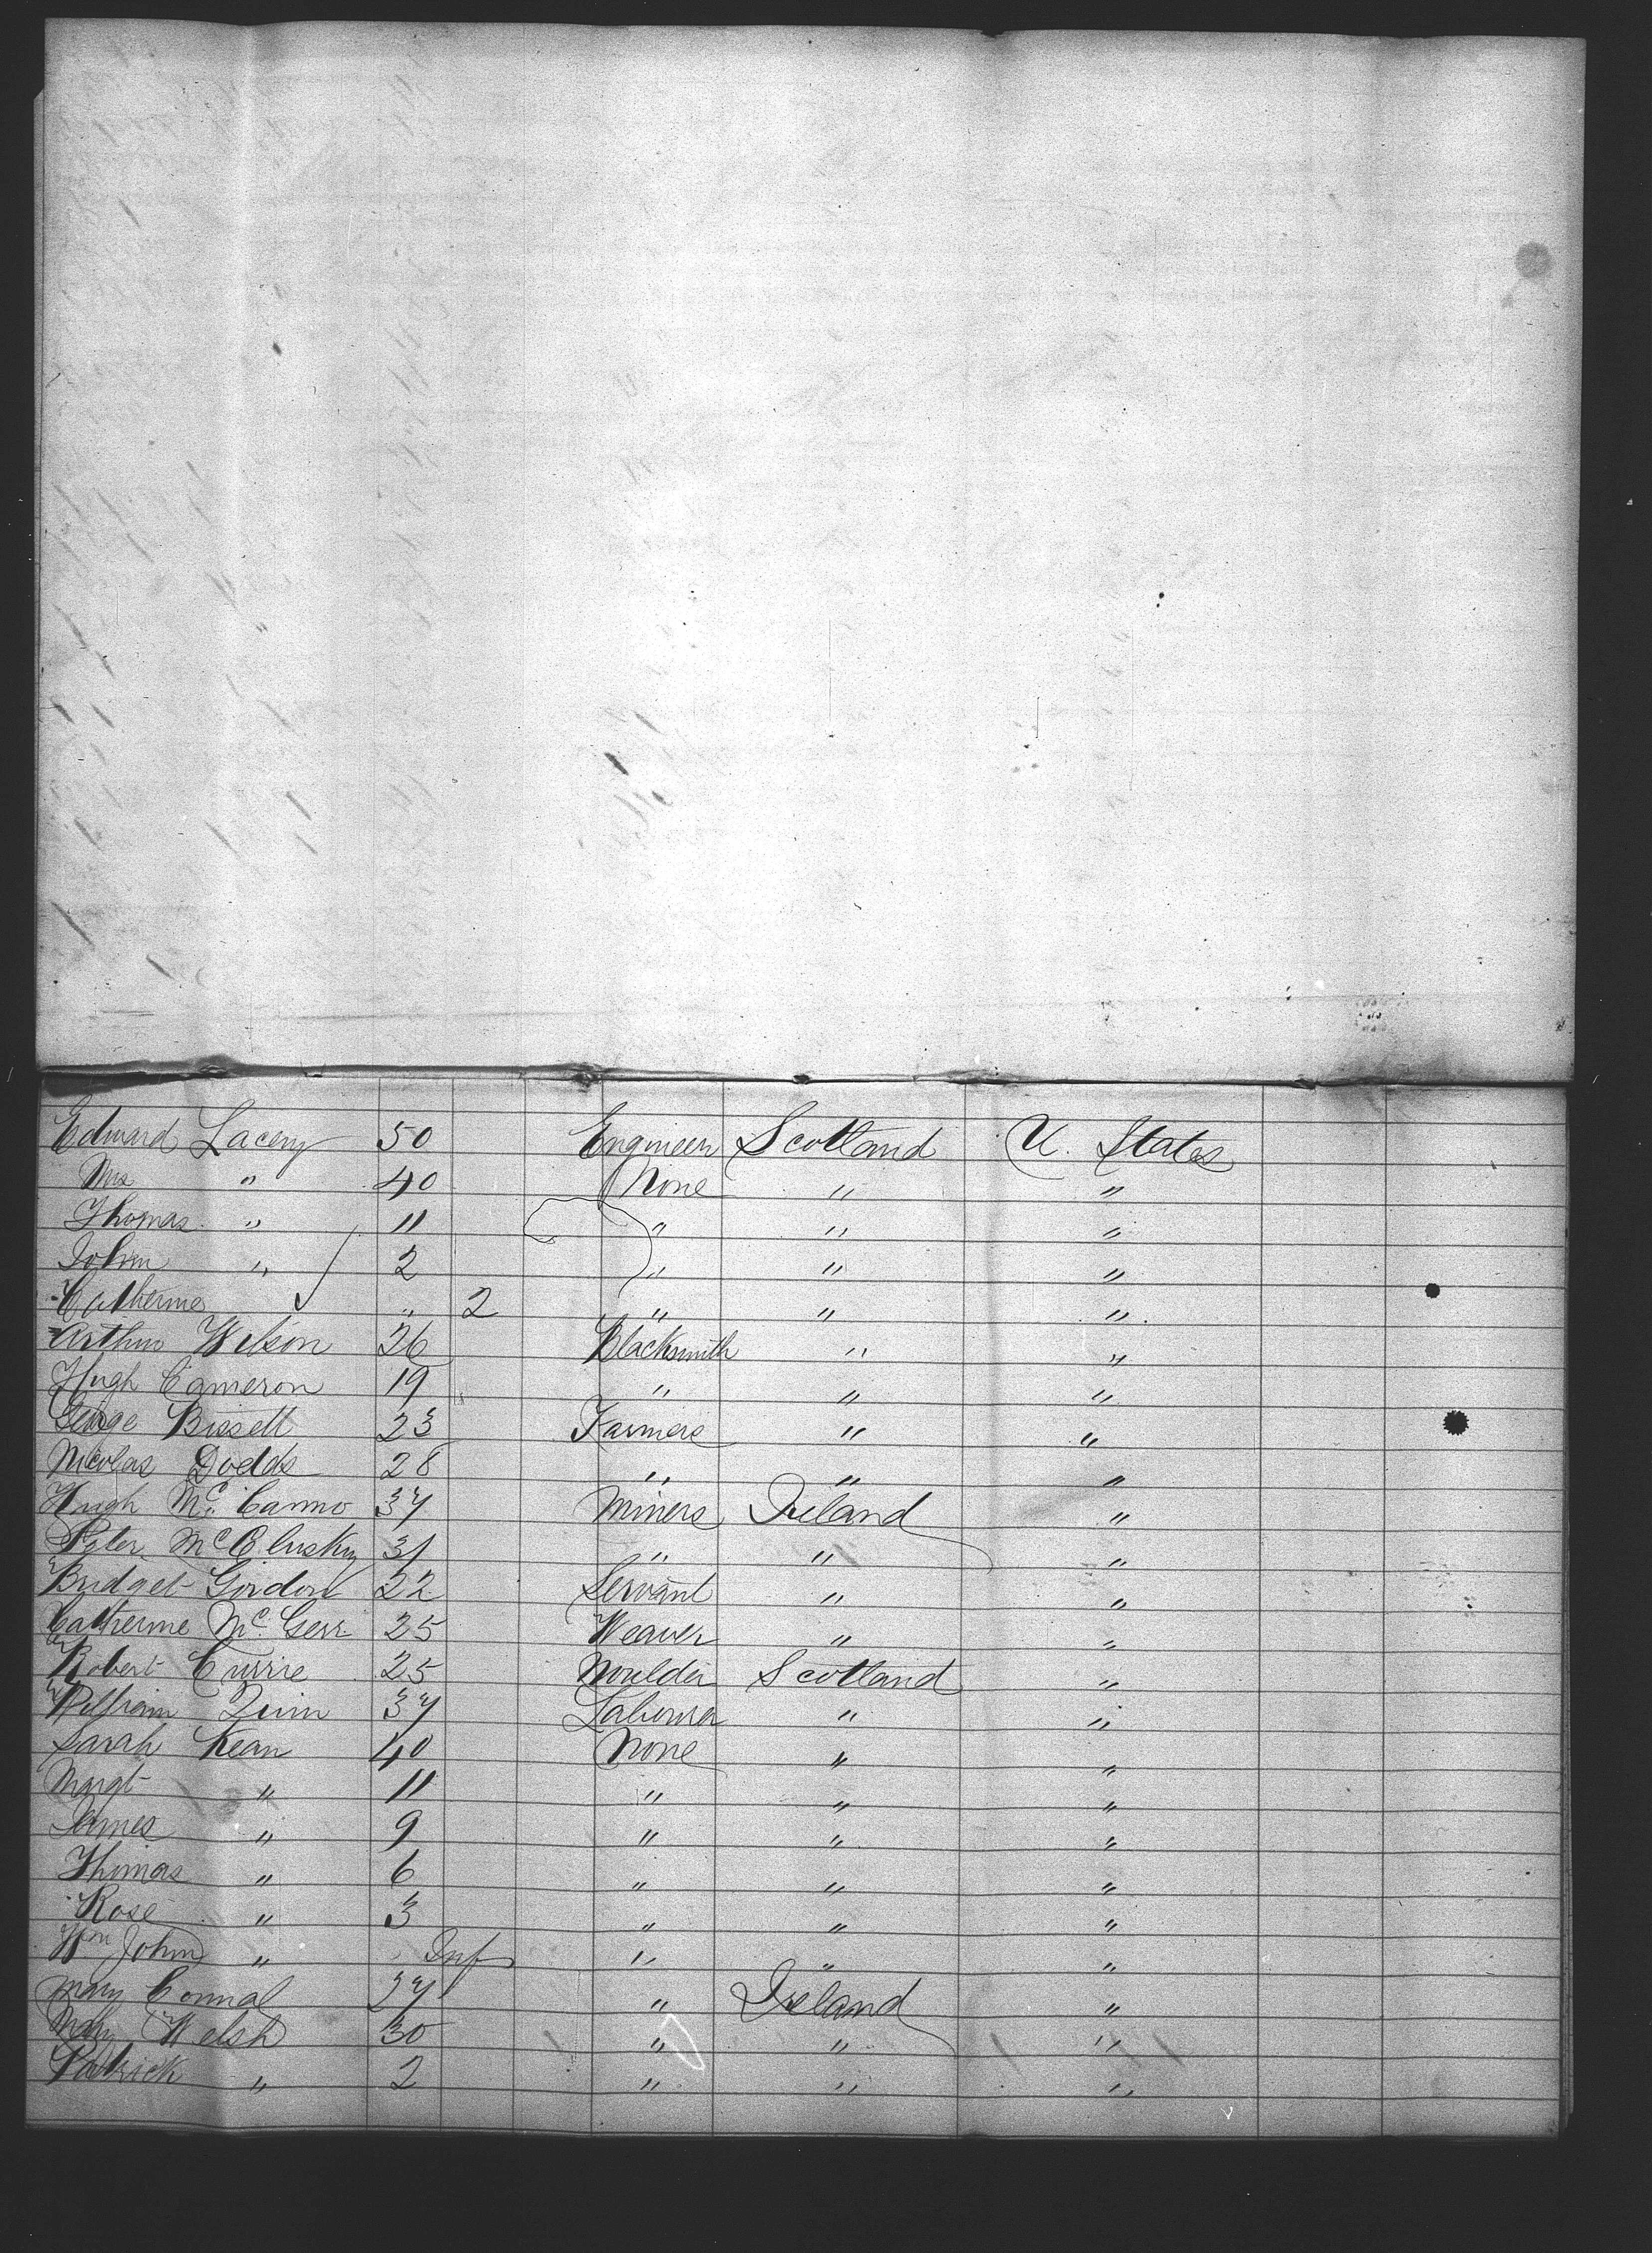 Edward Lacey 50 Engineer Scotland U. States
Mrs " 40 None " "
Thomas " 11 " " "
John " 2 " " "
Catherine " 2 " " "
Arthur Wilson 26 Blacksmith " "
Hugh Cameron 19 " " "
George Bissett 23 Farmers " "
Nicolas Dodds 28 " " "
Hugh Mc 37 Miners Ireland "
Peter McClusky 31 " " "
Bridget Gordon 22 Servant " "
Catherine Mc Gerr 25 Weaver " "
Robert Currie 25 Moulder Scotland "
William Quin 37 Labourer " "
Sarah Kean 40 None " "
Margt " 11 " " "
James " 9 " " "
Thomas " 6 " " "
Rose " 3 " " "
Wm John " Inf " " "
Mary Connal 27 " Ireland "
Mary Welsh 30 " " "
Patrick " 2 " " "